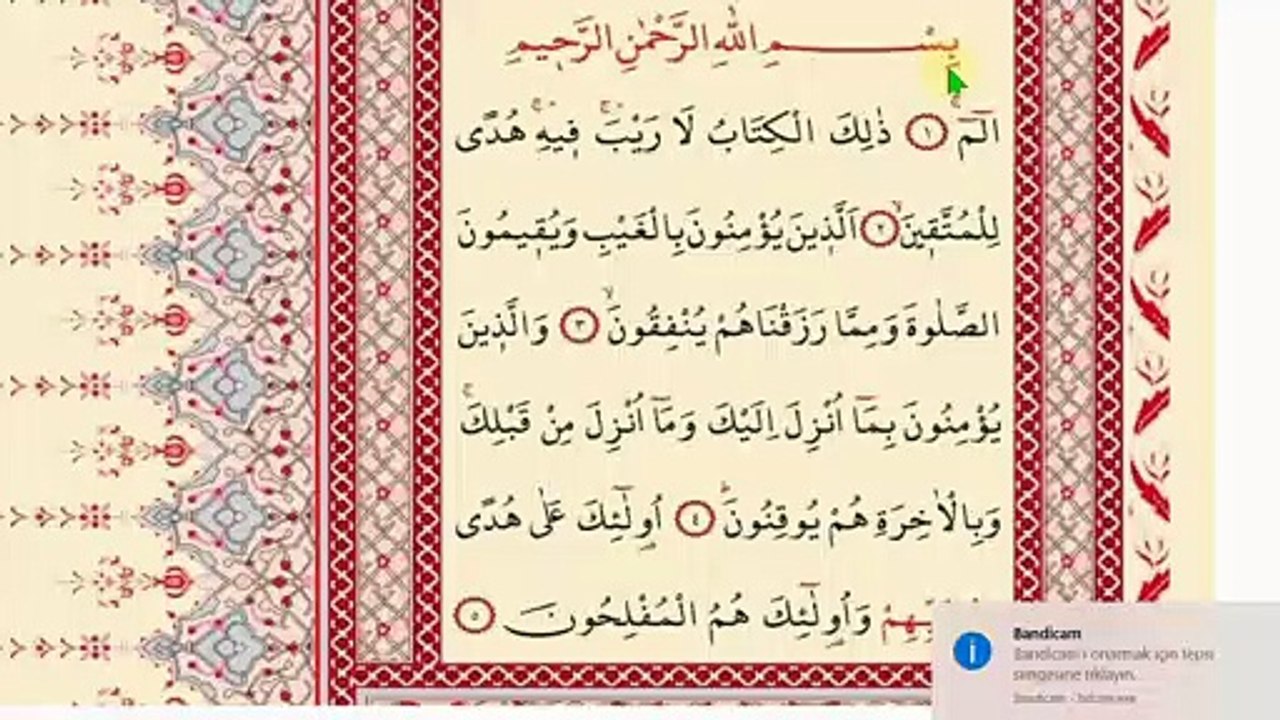 بِسْــــــــمِ اللّٰهِ الرَّحْمٰنِ الرَّحِيمِ
الٓمٓ ۚ ﴿١﴾ ذٰلِكَ الْكِتَابُ لَا رَيْبَ ۚۛ فِيهِ ۚۛ هُدًى
لِلْمُتَّقِينَ ۙ ﴿٢﴾ اَلَّذِينَ يُؤْمِنُونَ بِالْغَيْبِ وَيُقِيمُونَ
الصَّلٰوةَ وَمِمَّا رَزَقْنَاهُمْ يُنْفِقُونَ ۙ ﴿٣﴾ وَالَّذِينَ
يُؤْمِنُونَ بِمَٓا اُنْزِلَ اِلَيْكَ وَمَٓا اُنْزِلَ مِنْ قَبْلِكَ ۚ
وَبِالْاٰخِرَةِ هُمْ يُوقِنُونَ ۜ ﴿٤﴾ اُو۬لٰٓئِكَ عَلٰى هُدًى
وَاُو۬لٰٓئِكَ هُمُ الْمُفْلِحُونَ ﴿٥﴾
Bandicam
Bandicam'ı onarmak için tepsi
simgesine tıklayın.